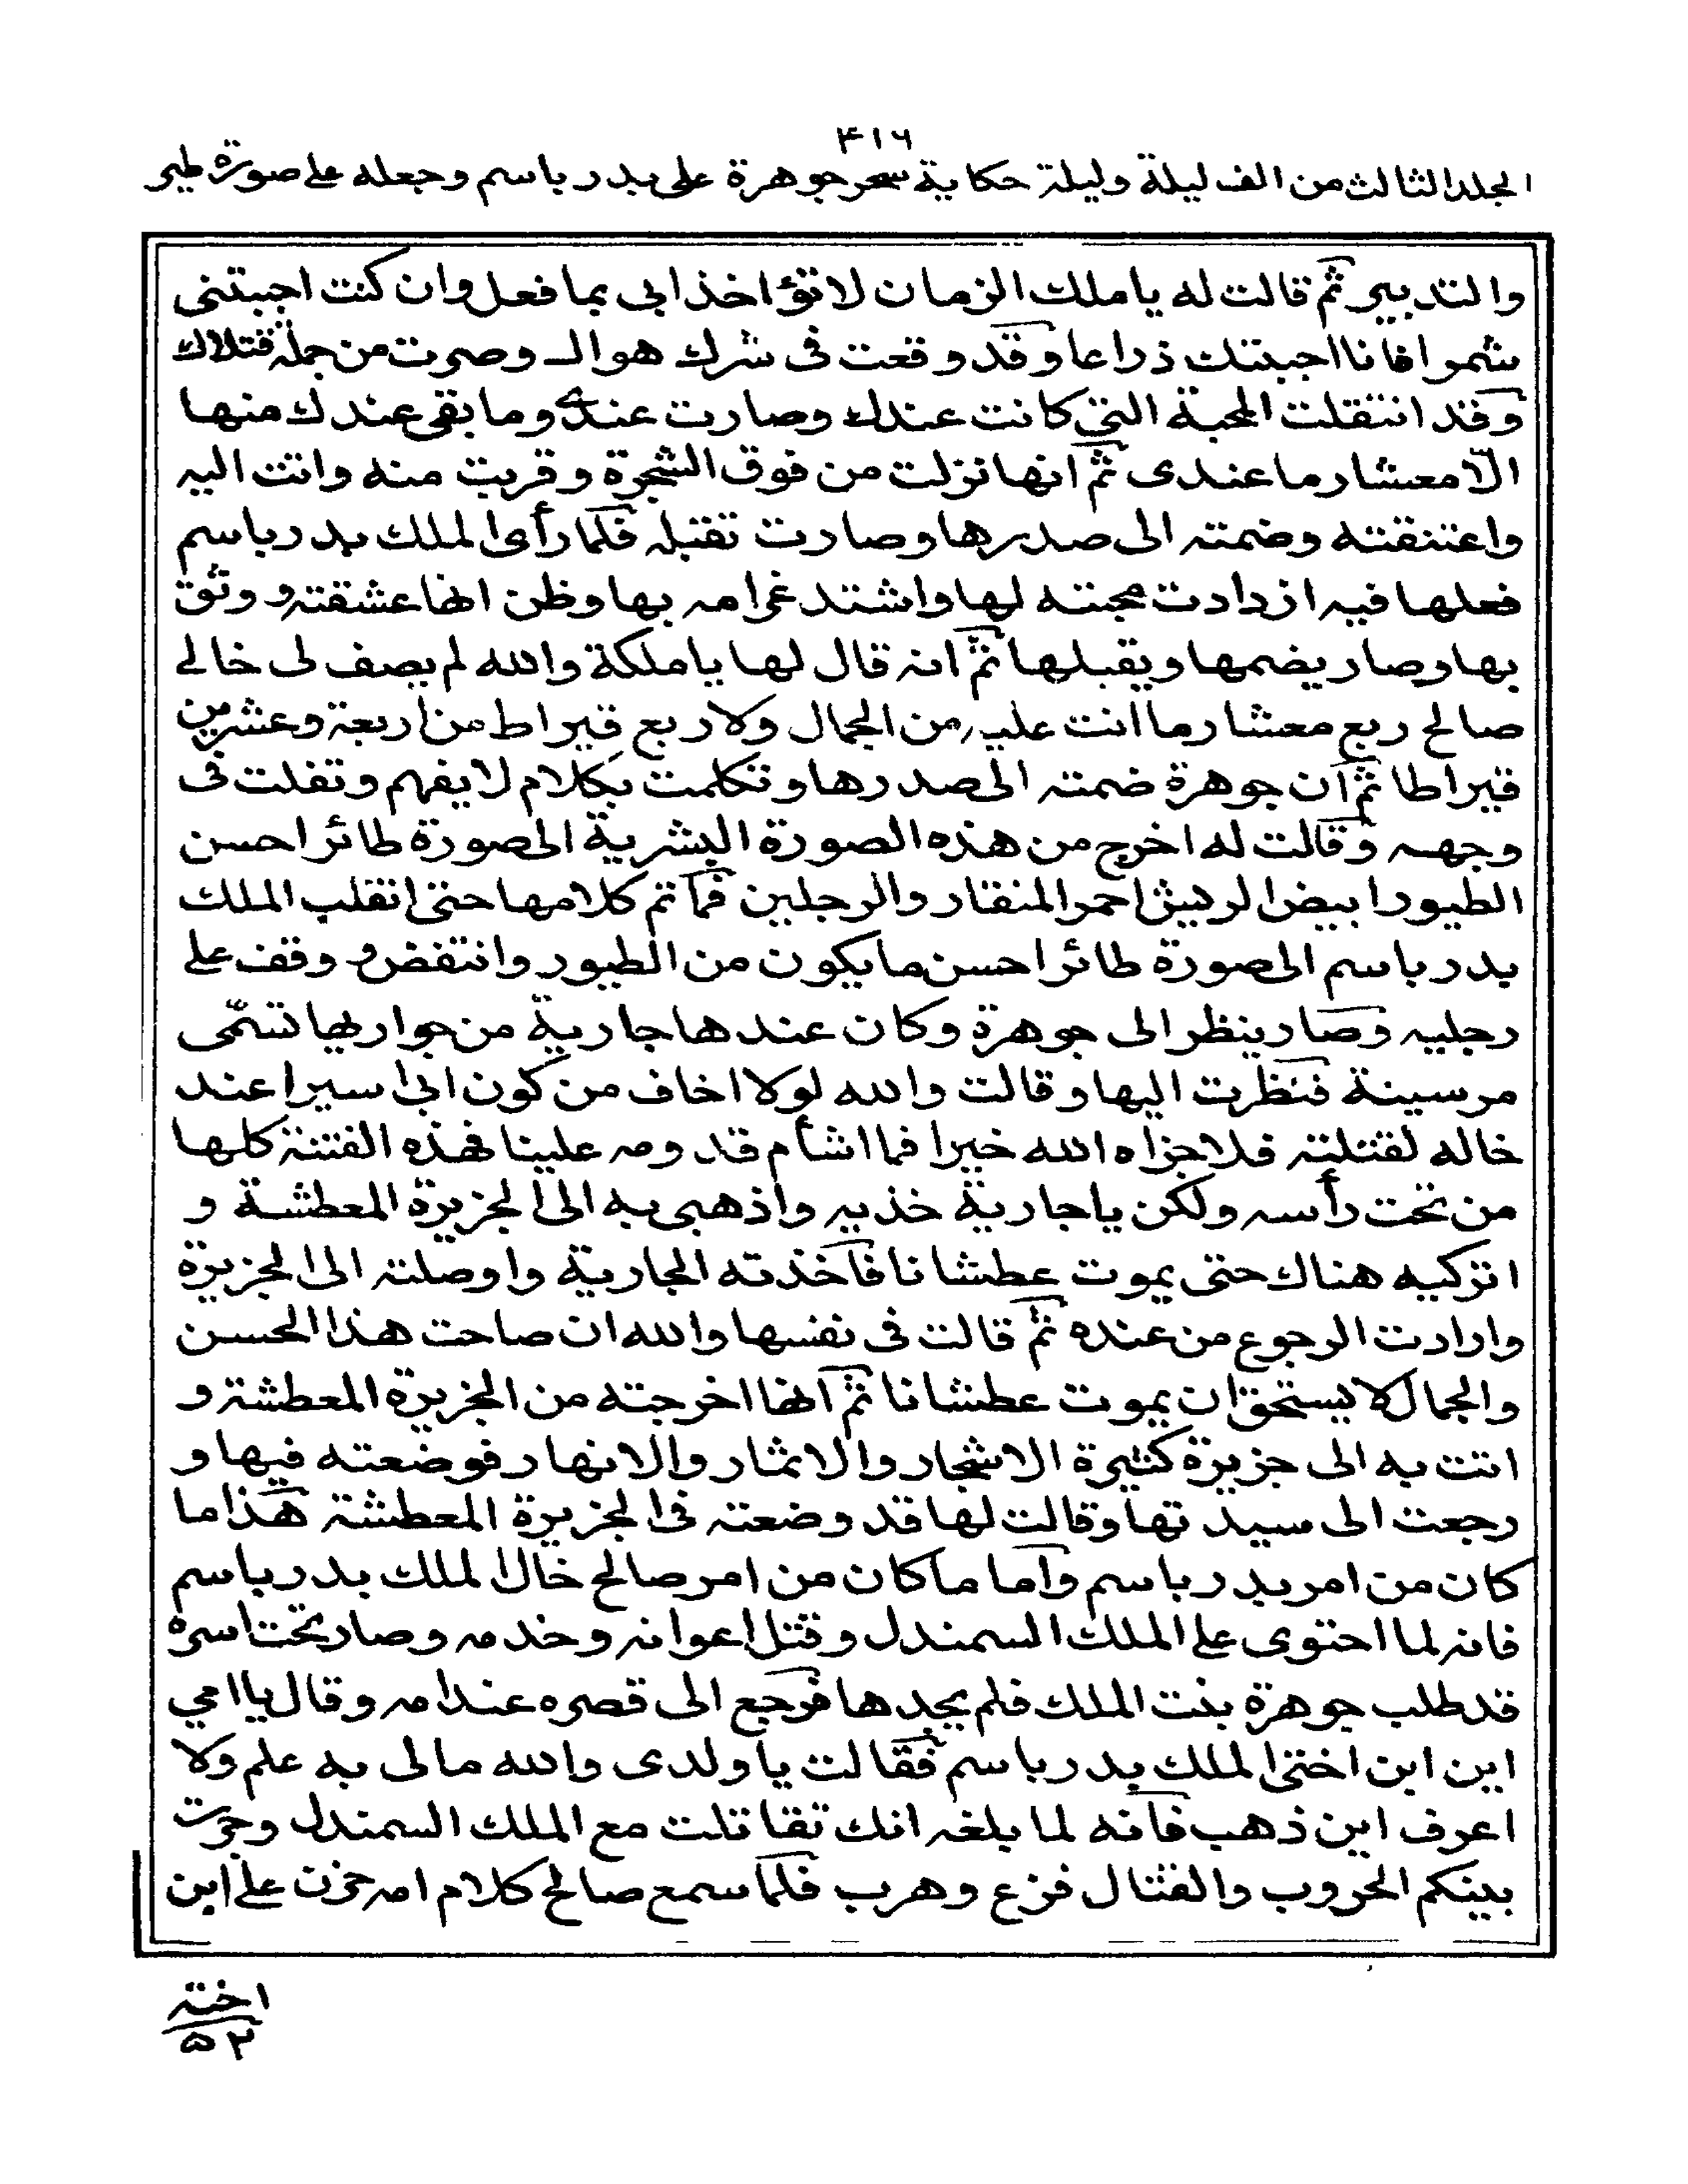 ٤١٦
الجلد الثالث من الف ليلة وليلة حكاية سحر جوهرة على بدر باسم وجعله على صورة طير
والتدبير ثم قالت له يا ملك الزمان لا تؤاخذ ابى بما فعل وان كنت احببتنى
شبرا فانا احببتك ذراعا وقد وقعت فى شرك هواك وصرت من جملة قتلاك
وقد انتقلت المحبة التى كانت عندك وصارت عندے وما بقى عندك منها
الّا معشار ما عندى ثم انها نزلت من فوق الشجرة وقربت منه واتت اليه
واعتنقته وضمته الى صدرها وصارت تقبله فلما رأى الملك بدر باسم
فعلها فيه ازدادت محبته لها واشتد غرامه بها وظن انها عشقته و وثق
بها وصار يضمها ويقبلها ثم انه قال لها يا ملكة والله لم يصف لى خالے
صالح ربع معشار ما انت عليه من الجمال ولا ربع قيراط من اربعة وعشرين
قيراطا ثم ان جوهرة ضمته الى صدرها وتكلمت بكلام لا يفهم وتفلت فى
وجهه وقالت له اخرج من هذه الصورة البشرية الى صورة طائر احسن
الطيور ابيض الريش احمر المنقار والرجلين فما تم كلامها حتى انقلب الملك
بدر باسم الى صورة طائر احسن ما يكون من الطيور وانتفض و وقف على
رجليه وصار ينظر الى جوهرة وكان عندها جارية من جواريها تسمّى
مرسينة فنظرت اليها وقالت والله لولا اخاف من كون ابى اسيرا عند
خاله لقتلته فلا جزاه الله خيرا فما اشأم قدومه علينا فهذه الفتنة كلها
من تحت رأسه ولكن يا جارية خذيه واذهبى به الى الجزيرة المعطشة و
اتركيه هناك حتى يموت عطشانا فاخذته الجارية واوصلته الى الجزيرة
وارادت الرجوع من عنده ثم قالت فى نفسها والله ان صاحت هذا الحسن
والجمال لا يستحق ان يموت عطشانا ثم انها اخرجته من الجزيرة المعطشة و
اتت به الى جزيرة كثيرة الاشجار والاثمار والانهار فوضعته فيها و
رجعت الى سيدتها وقالت لها قد وضعته فى الجزيرة المعطشة هذا ما
كان من امر بدر باسم واما ما كان من امر صالح خال الملك بدر باسم
فانه لما احتوى على الملك السمندل وقتل اعوانه وخدمه وصار تحت اسره
قد طلب جوهرة بنت الملك فلم يجدها فرجع الى قصره عند امه وقال يا امي
اين ابن اختى الملك بدر باسم فقالت يا ولدى والله ما لى به علم ولا
اعرف اين ذهب فانه لما بلغه انك تقاتلت مع الملك السمندل وجرت
بينكم الحروب والقتال فزع وهرب فلما سمع صالح كلام امه حزن على ابن
اخته
٥٢